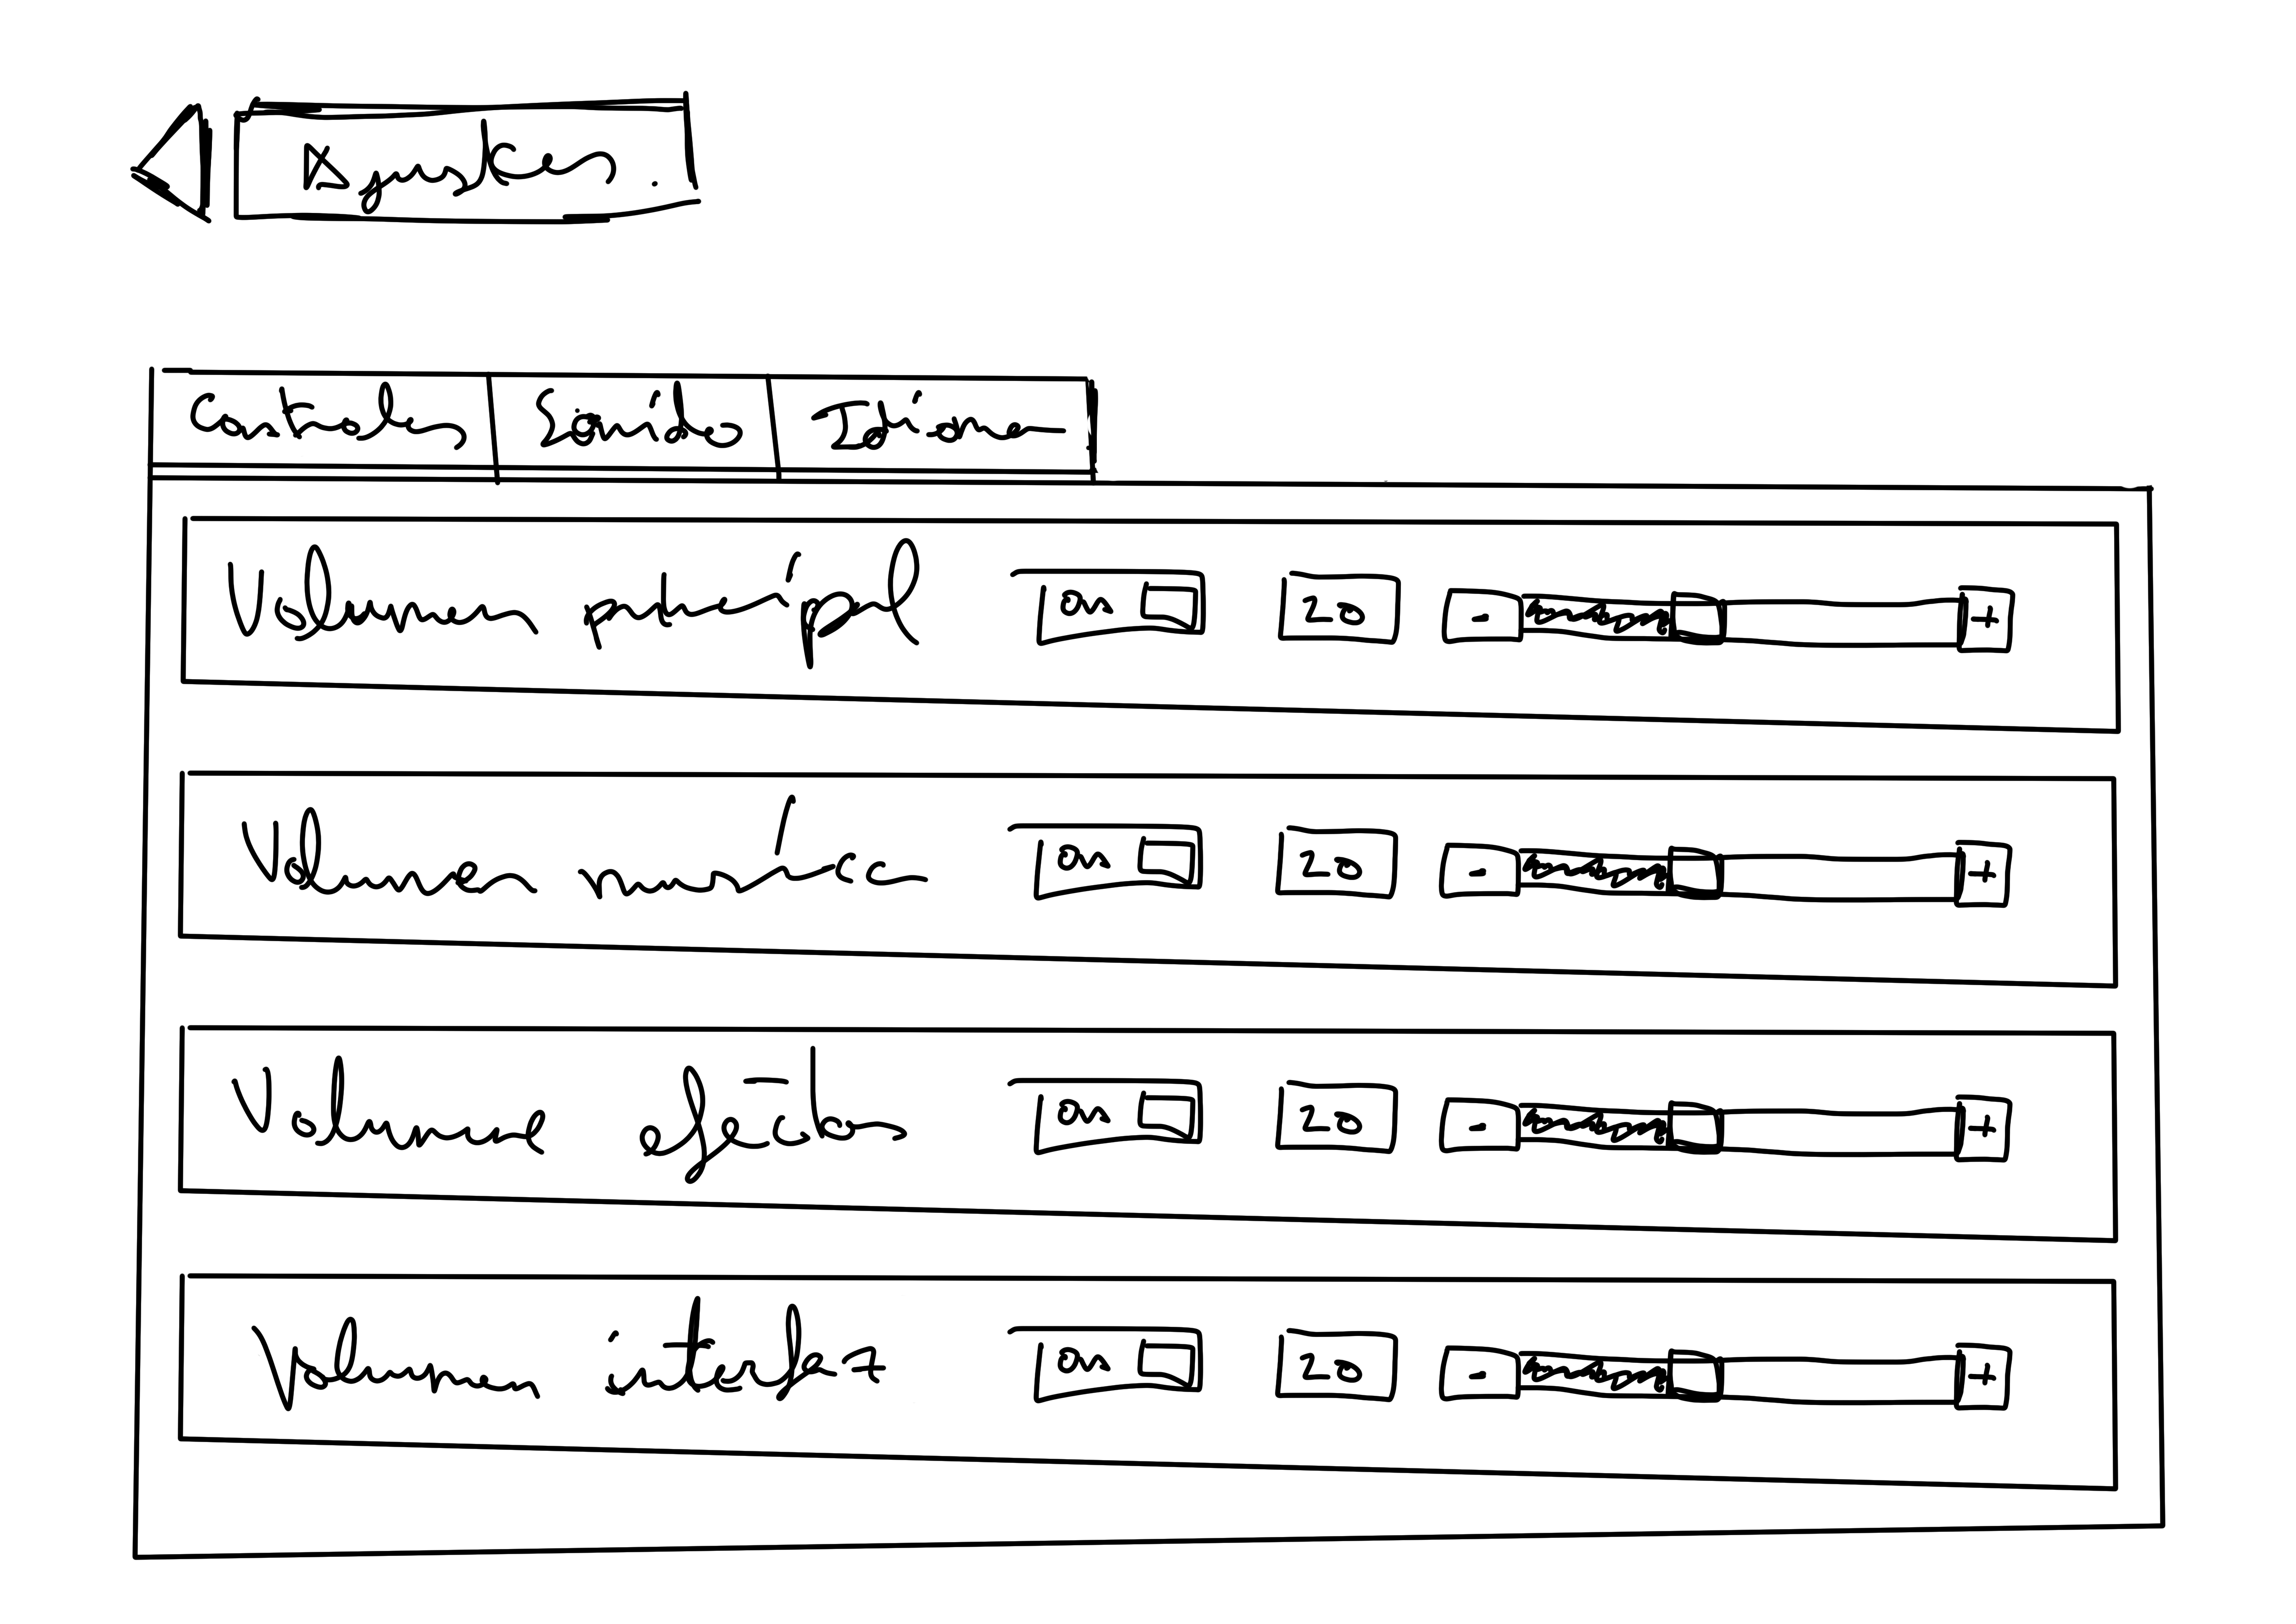 Ajustes
Controles Sonido Idioma
Volumen principal on 20 - +
Volumen música on 20 - +
Volumen efectos on 20 - +
Volumen on 20 - +